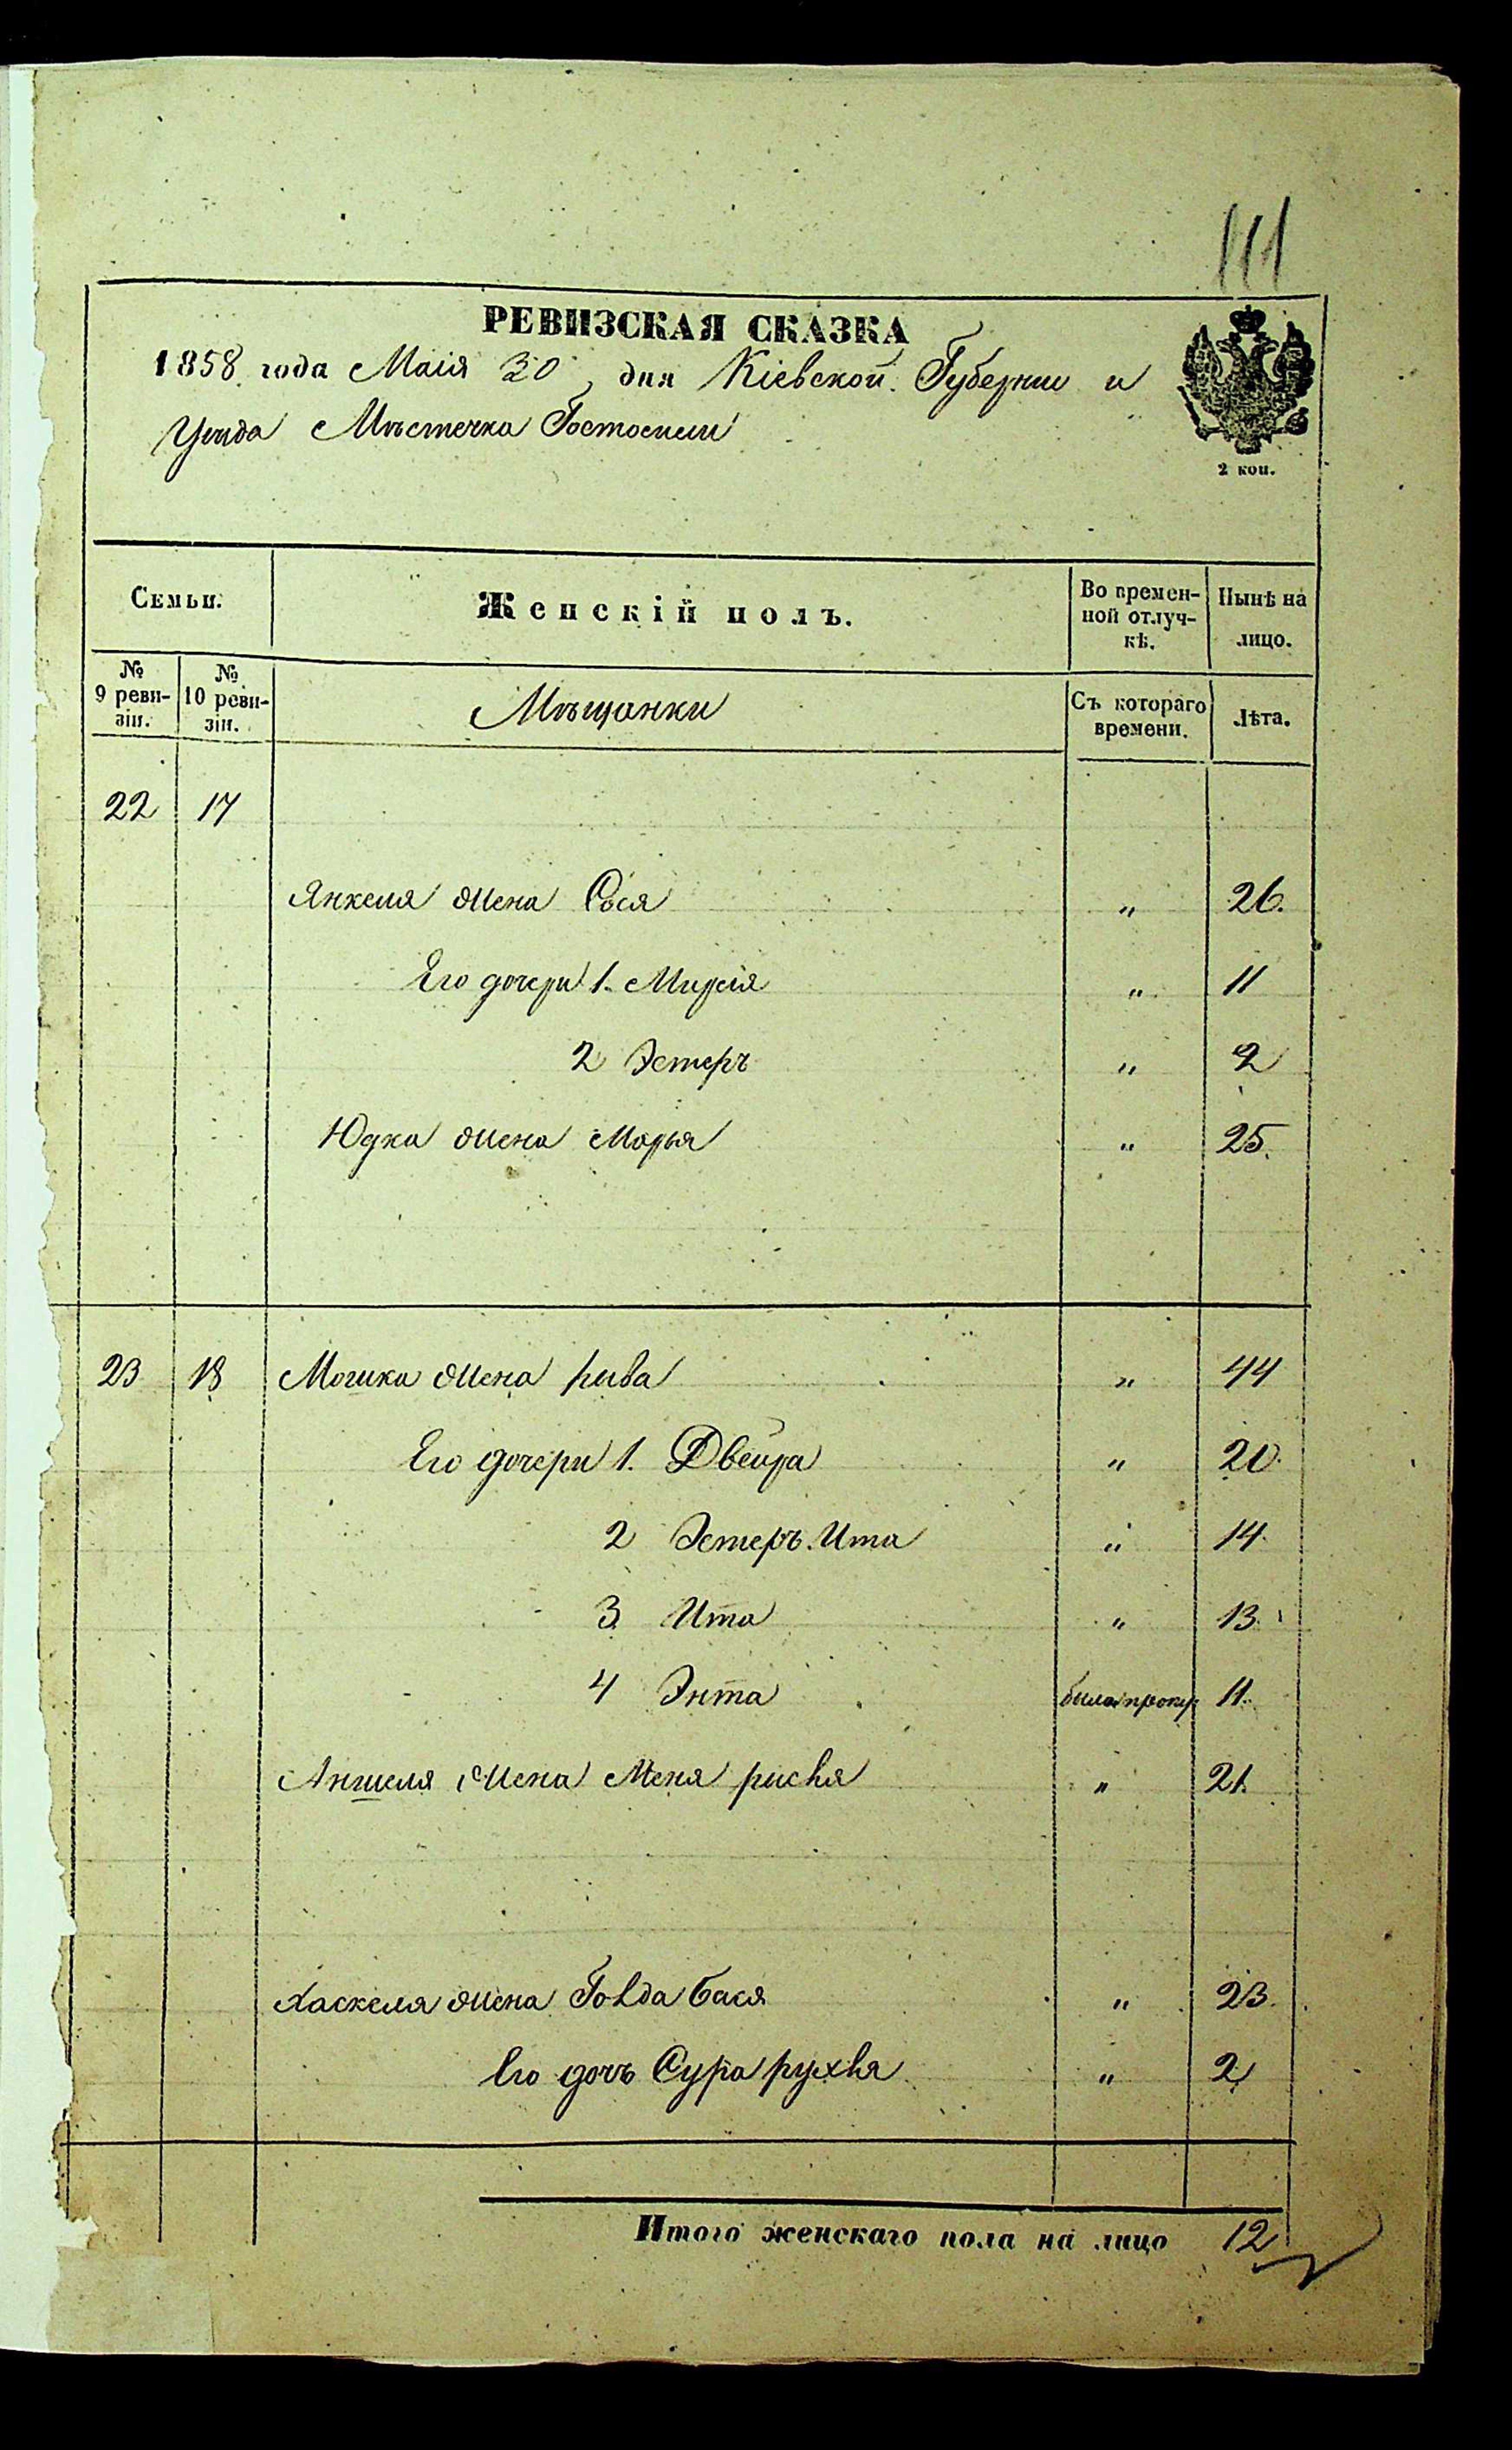 111
РЕВИЗСКАЯ СКАЗКА
1858 года Маія 30 дня Кіевской Губерніи и
Уѣзда Мѣстечка Гостомли
2 коп.
Семьи.
Женскій полъ.
Во времен-
ной отлуч-
кѣ.
Нынѣ на
лицо.
№
9 реви-
зіи.
№
10 реви-
зіи.
Мѣщанки
Съ котораго
времени.
Лѣта.
22 17
Янкеля жена Сося " 26.
Его дочери 1. Мирля " 11
2 Эстеръ " 2
Юдка жена Марья " 25.
23 18 Мошка жена рива " 44
Его дочери 1. Двейра " 20.
2 Эстеръ Ита " 14.
3 Ита " 13.
4 Энта была проп. 11.
Аншеля жена Меня рисля " 21.
Хаскеля жена Голда бася " 23.
Его дочь Сура рухля " 2
Итого женскаго пола на лицо 12